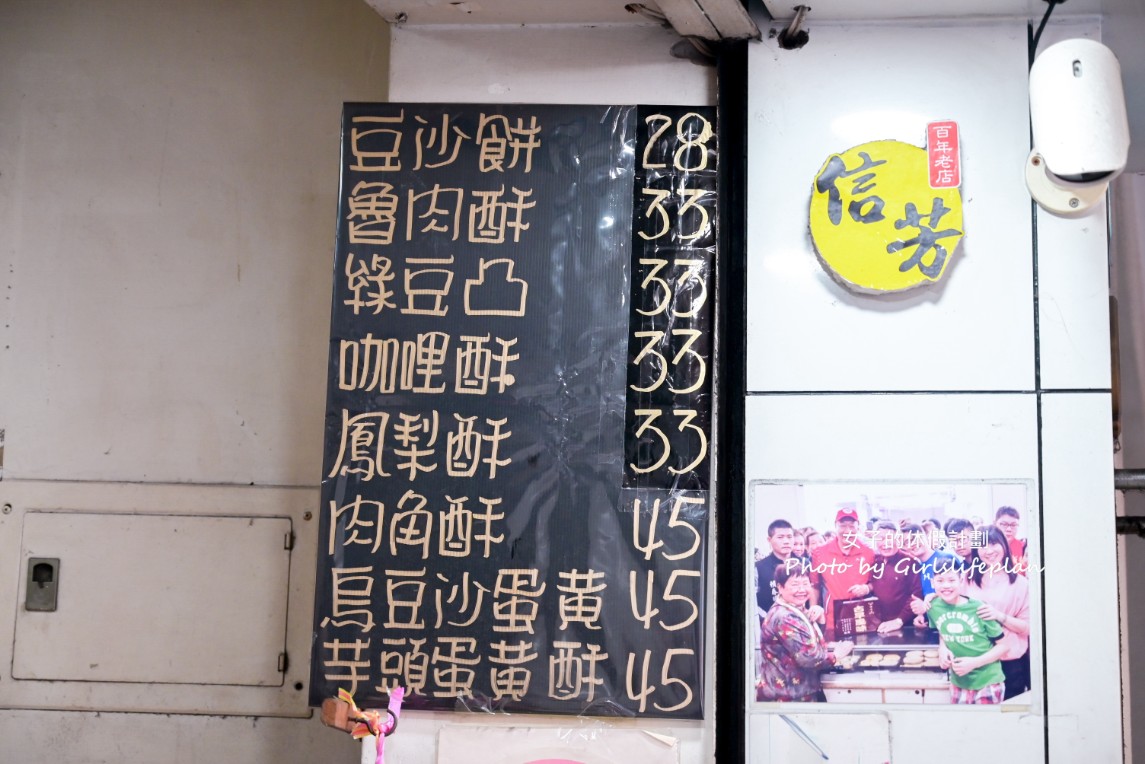 豆沙餅 28
魯肉酥 33
綠豆凸 33
咖哩酥 33
鳳梨酥 33
肉角酥 45
烏豆沙蛋黃 45
芋頭蛋黃酥 45
百年老店
信芳
女子的休假計劃
Photo by Girlslifeplan